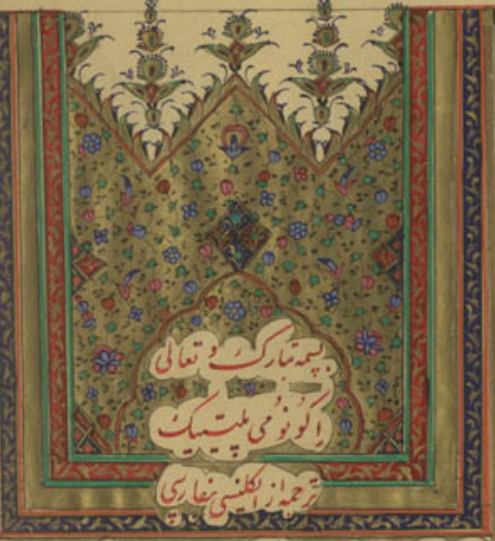 بسمه تبارک و تعالی
اِکُونُومی پلیتیک
ترجمه از انکلیسی بفارسی